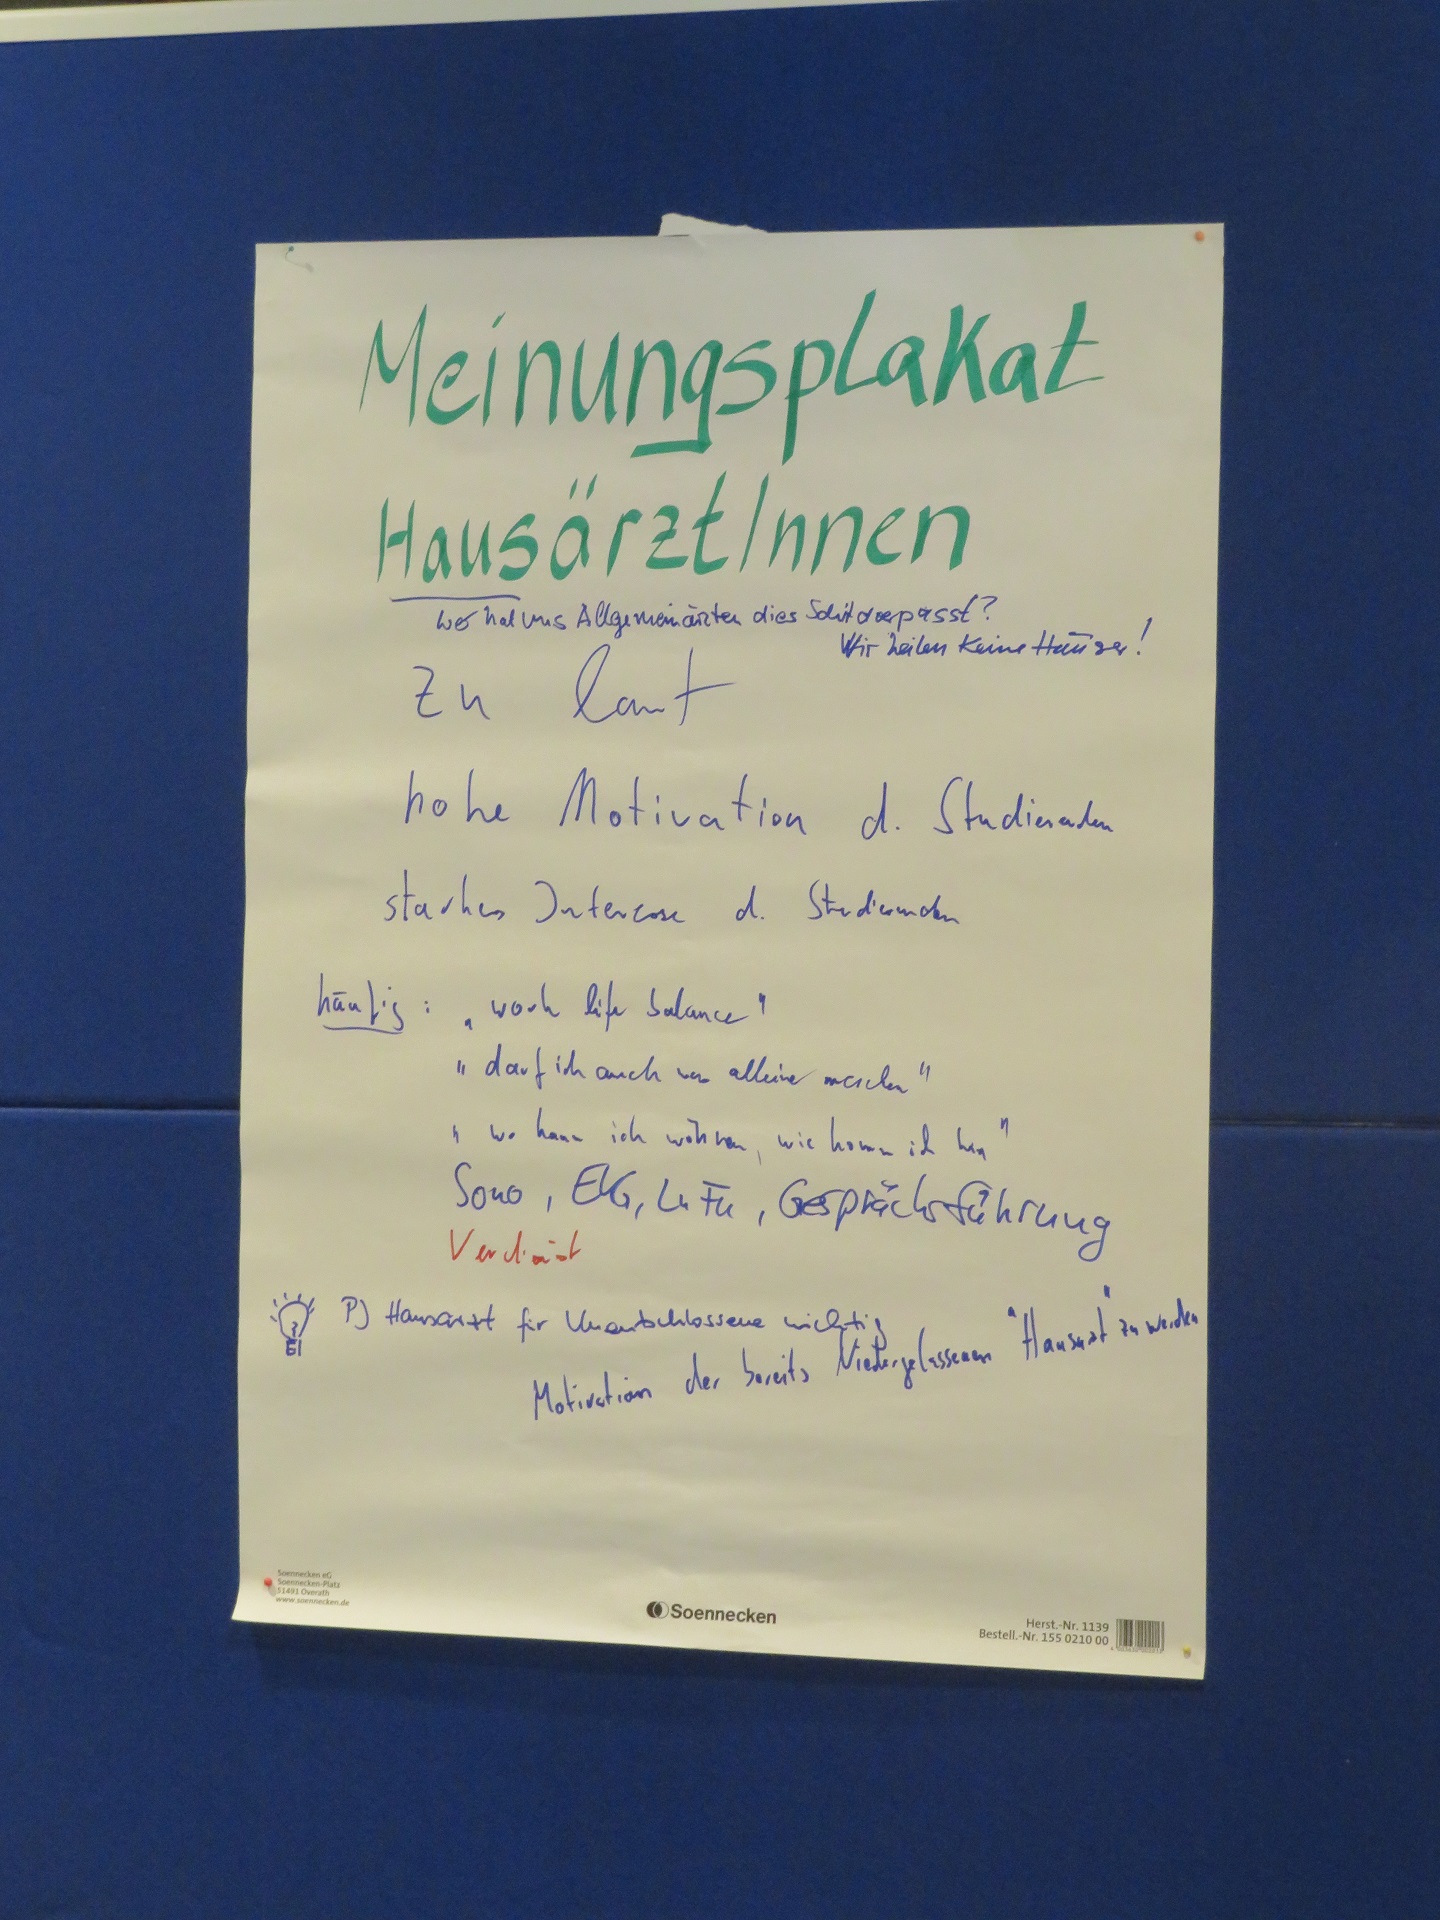 Meinungsplakat
HausärztInnen
wer hat uns Allgemeinärzten dies Schild verpasst?
Wir heilen keine Häuser!
zu laut
hohe Motivation d. Studierenden
starkes Interesse d. Studierenden
häufig: „work life balance"
"darf ich auch was alleine machen"
"wo kann ich wohnen, wie komm ich hin"
Sono, EKG, LuFu, Gesprächsführung
Verdienst
PJ Hausarzt für Unentschlossene wichtig
Motivation der bereits Niedergelassenen "Hausarzt" zu werden
Soennecken eG
Soennecken-Platz
51491 Overath
www.soennecken.de
Soennecken
Herst.-Nr. 1139
Bestell.-Nr. 155 0210 00